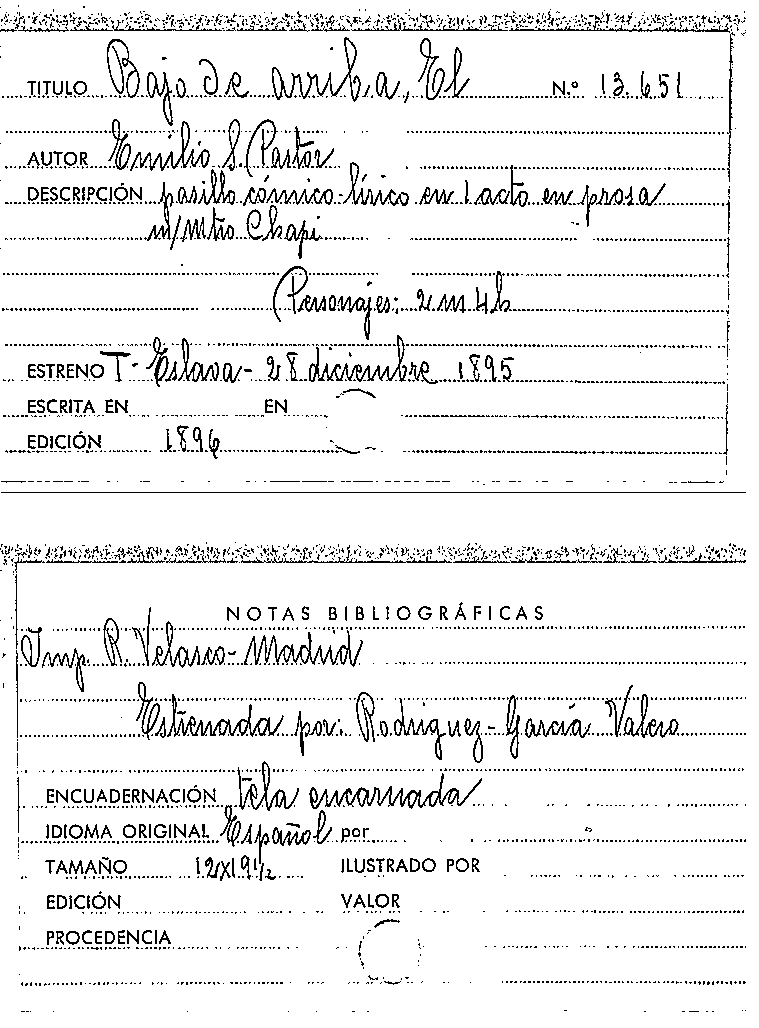 TITULO Bajo de arriba, El N.º 13.651
AUTOR Emilio S. Pastor
DESCRIPCIÓN pasillo cómico-lírico en 1 acto en prosa
m/mtro Chapi
Personajes: 2 m 4 h
ESTRENO T- Eslava- 28 diciembre 1895
ESCRITA EN EN
EDICIÓN 1896
NOTAS BIBLIOGRÁFICAS
Imp. R. Velasco- Madrid
Estrenada por: Rodriguez- García Valero
ENCUADERNACIÓN tela encarnada
IDIOMA ORIGINAL Español por
TAMAÑO 12X19 1/2 ILUSTRADO POR
EDICIÓN VALOR
PROCEDENCIA